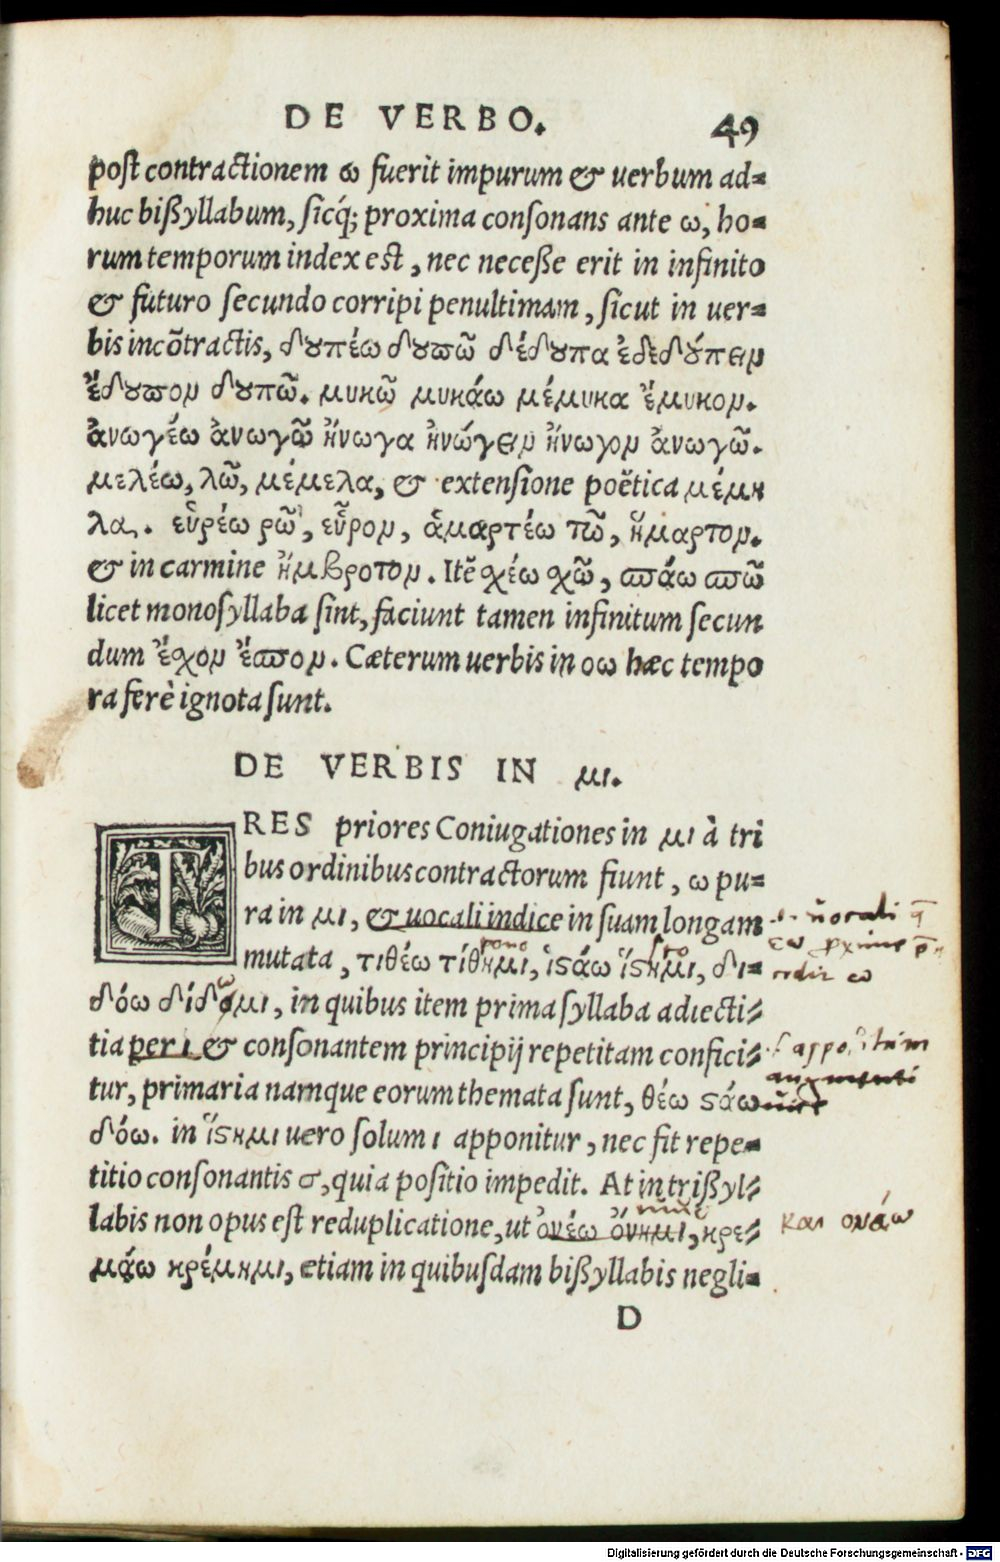 DE VERBO.
49
post contractionem ω fuerit impurum & uerbum ad=
huc bißyllabum, sicq́; proxima consonans ante ω, ho=
rum temporum index est, nec neceße erit in infinito
& futuro secundo corripi penultimam, sicut in uer=
bis incõtractis, δουπέω δουπῶ δέδουπα ἐδεδούπειν
ἔδουπον δουπῶ. μυκῶ μυκάω μέμυκα ἔμυκον.
ἀνωγέω ἀνωγῶ ἤνωγα ἠνώγειν ἤνωγον ἀνωγῶ.
μελέω, λῶ, μέμελα, & extensione poëtica μέμη
λα. εὑρέω ρῶ, εὗρον, ἁμαρτέω τῶ, ἥμαρτον.
& in carmine ἤμβροτον. Itẽ χέω χῶ, πάω πῶ
licet monosyllaba sint, faciunt tamen infinitum secun
dum ἔχον ἔπον. Cæterum uerbis in οω hæc tempo
ra ferè ignota sunt.
DE VERBIS IN μι.
TRES priores Coniugationes in μι à tri
bus ordinibus contractorum fiunt, ω pu=
ra in μι, & uocali indice in suam longam
mutata, τιθέω τίθημι, ἱστάω ἵστημι, δι=
δόω δίδομι, in quibus item prima syllaba adiecti=
tia per ι & consonantem principij repetitam confici=
tur, primaria namque eorum themata sunt, θέω στάω
δόω. in ἵστημι uero solum ι apponitur, nec fit repe=
titio consonantis σ, quia positio impedit. At in trißyl=
labis non opus est reduplicatione, ut ὀνέω ὄνημι, κρε=
μάω κρέμημι, etiam in quibusdam bißyllabis negli=
και ονάω
D
Digitalisierung gefördert durch die Deutsche Forschungsgemeinschaft - DFG